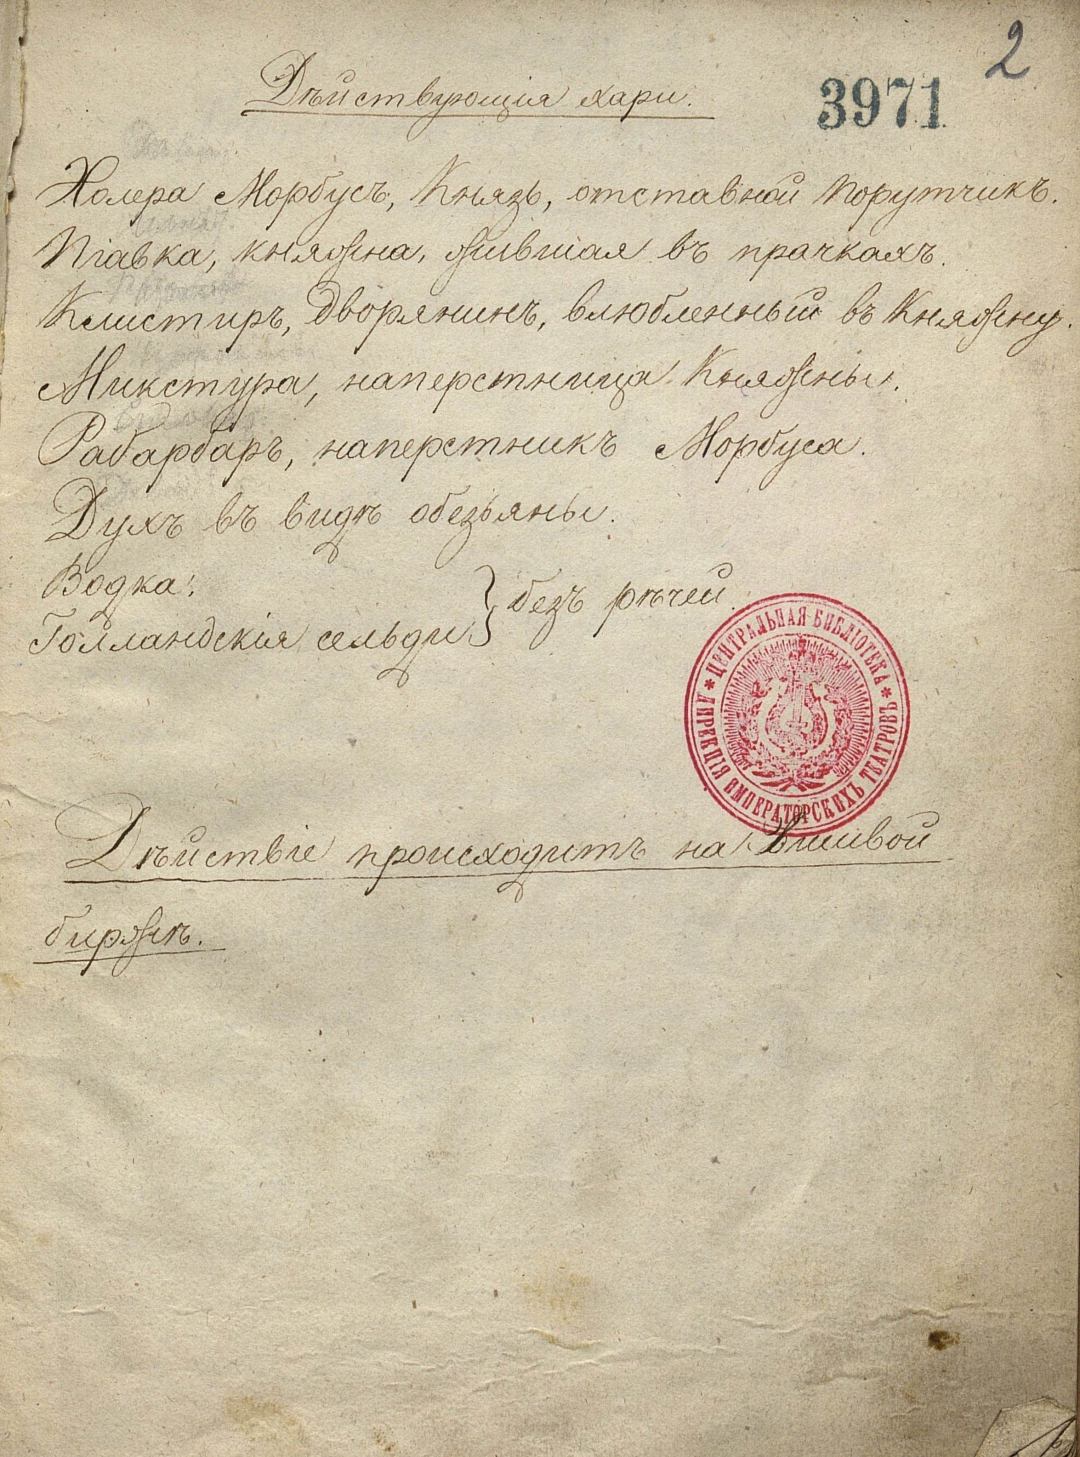 2
3971
Дѣйствующія хари.
Холера Морбусъ, Князь, отставной порутчикъ.
Піавка, княжна, жившая въ прачкахъ.
Клистиръ, дворянинъ, влюбленный въ Княжну.
Микстура, наперстница Княжны.
Рабарбаръ, наперстникъ Морбуса.
Духъ въ видѣ обезьяны.
Водка,
Голландскія сельди } безъ рѣчей.
* ЦЕНТРАЛЬНАЯ БИБЛІОТЕКА *
ДИРЕКЦІЯ ИМПЕРАТОРСКИХЪ ТЕАТРОВЪ
Дѣйствіе происходитъ на Вшивой
биржѣ.